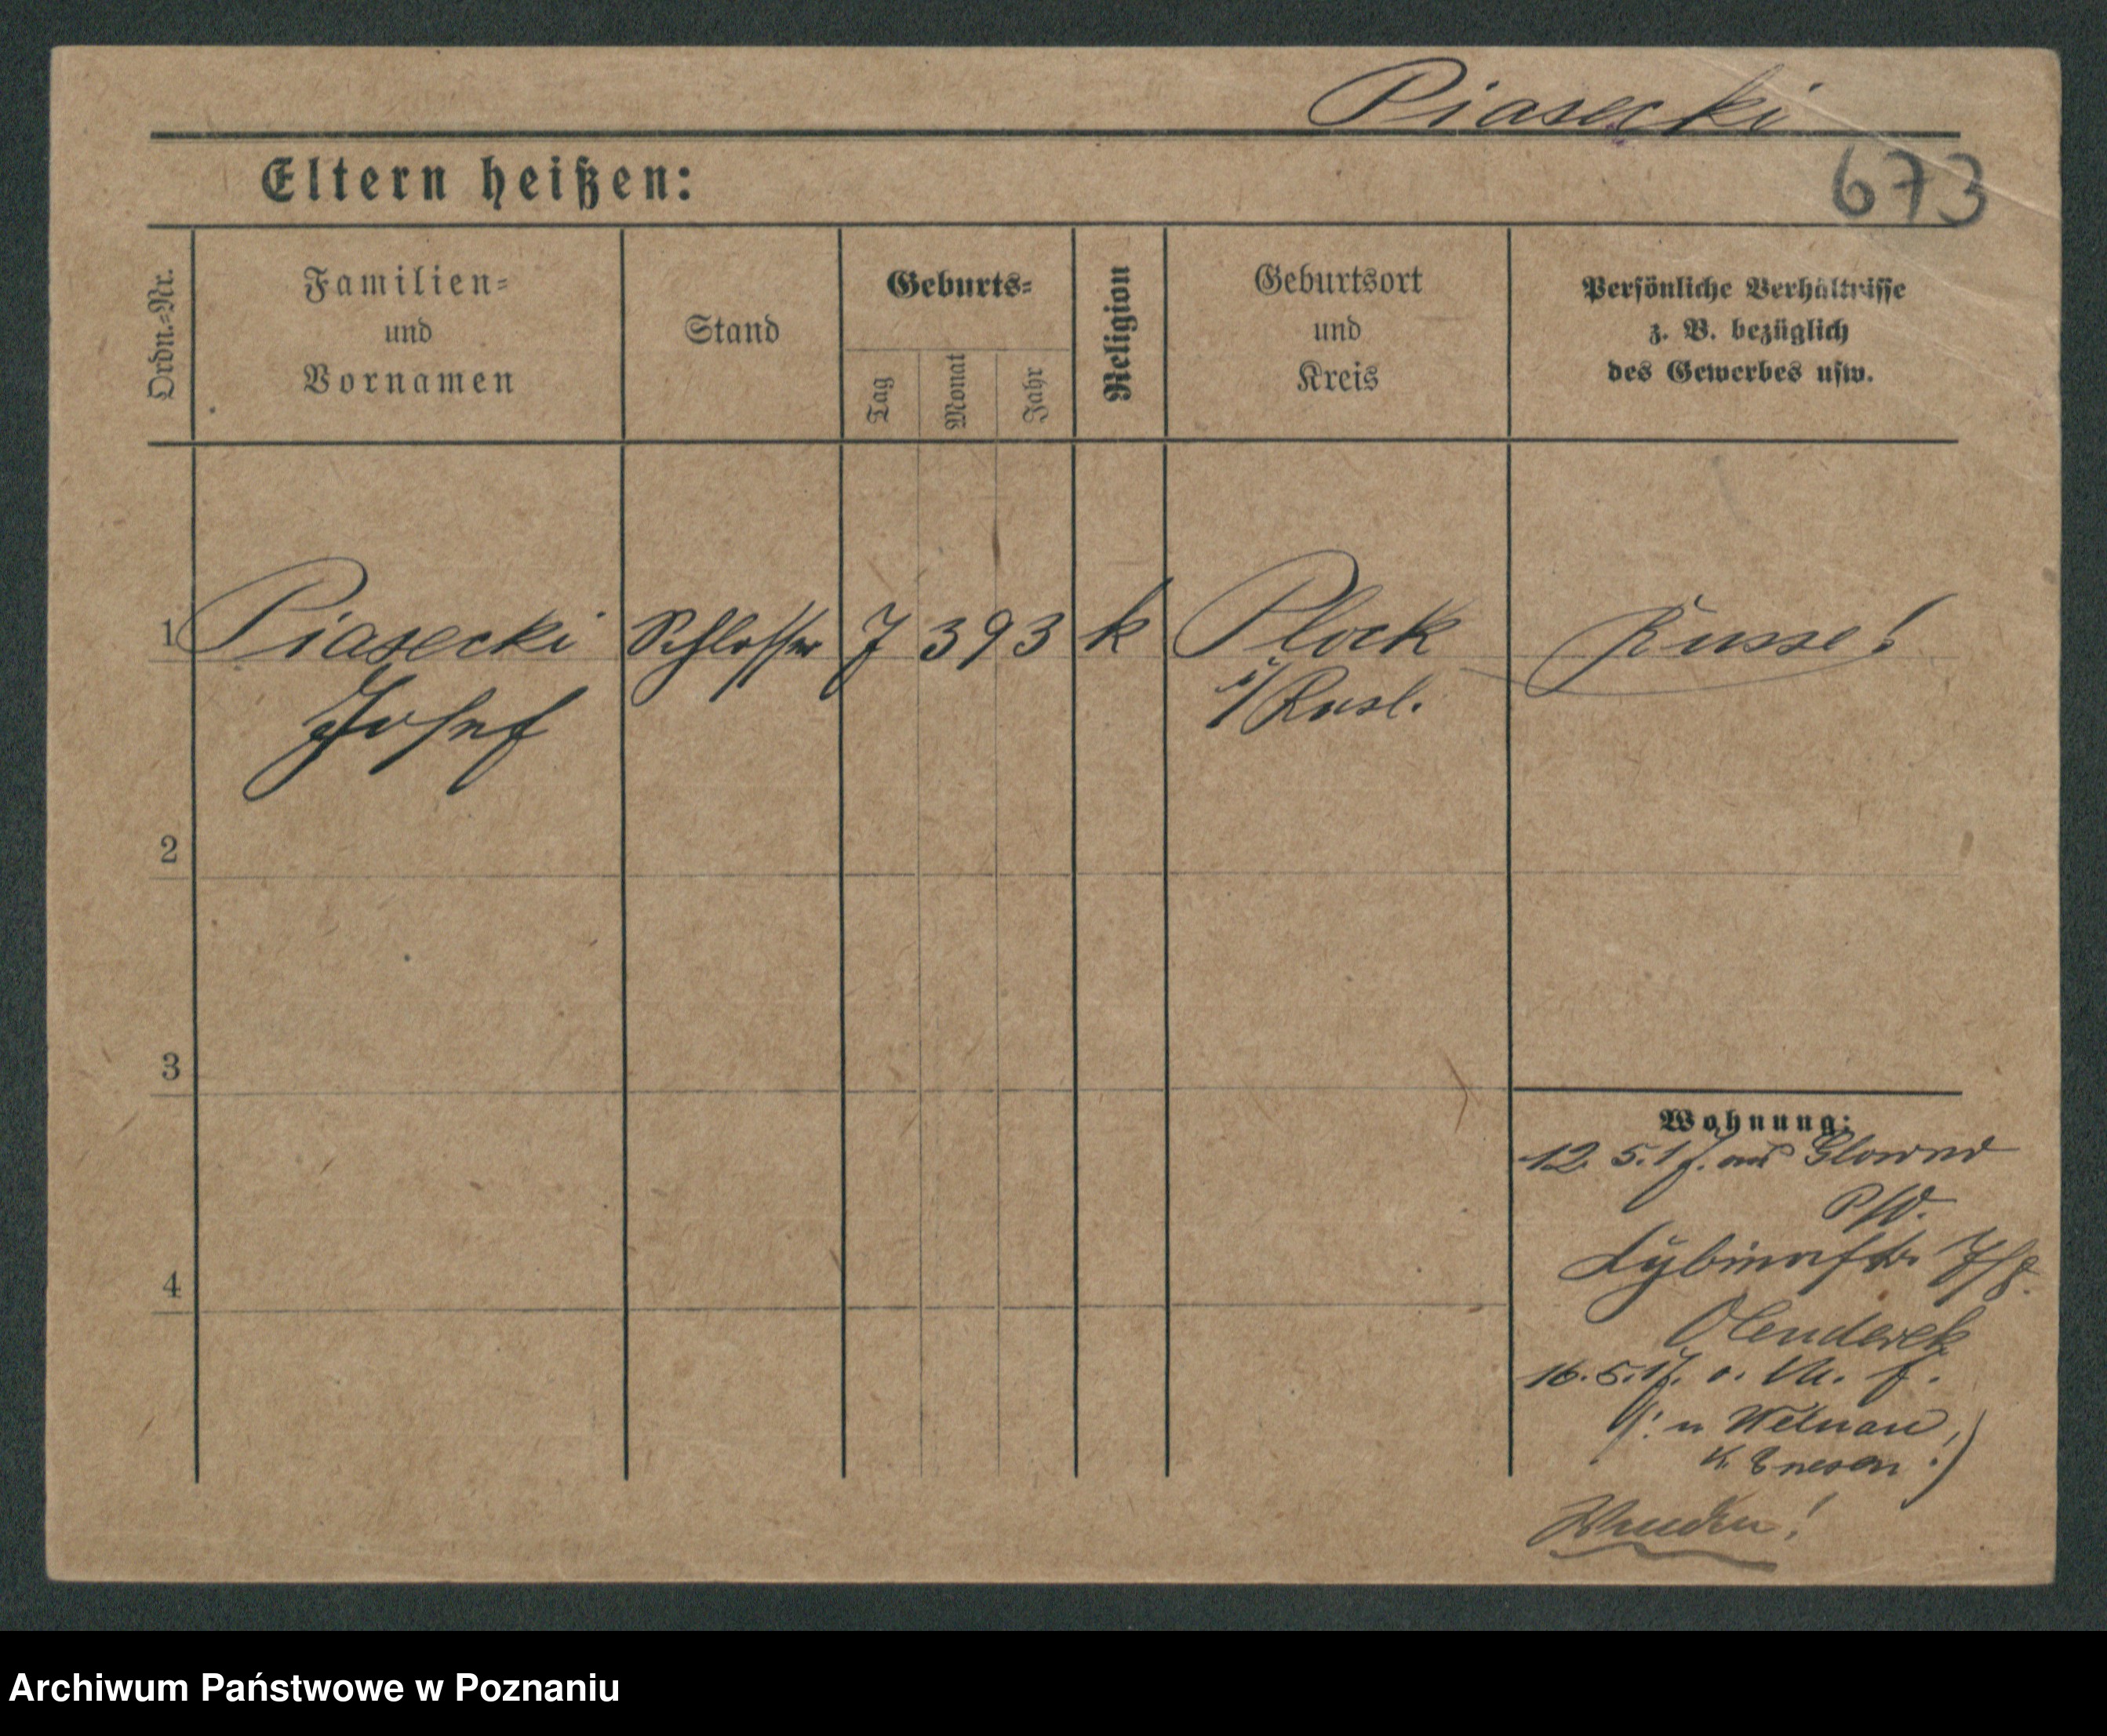 Piasecki
Eltern heißen:
673
Ordn.-Nr.
Familien-
und
Vornamen
Stand
Geburts-
Tag
Monat
Jahr
Religion
Geburtsort
und
Kreis
Persönliche Verhältnisse
z. B. bezüglich
des Gewerbes usw.
1 Piasecki Schlosser 7 3 93 k Plock Russe!
Josef i/Rusl.
2
3
4
Wohnung:
12. 5. 17. aus Glowno
P/W.
Olenderek
16. 5. 17.
n Welnau
K. Gnesen
Wenden!
Archiwum Państwowe w Poznaniu